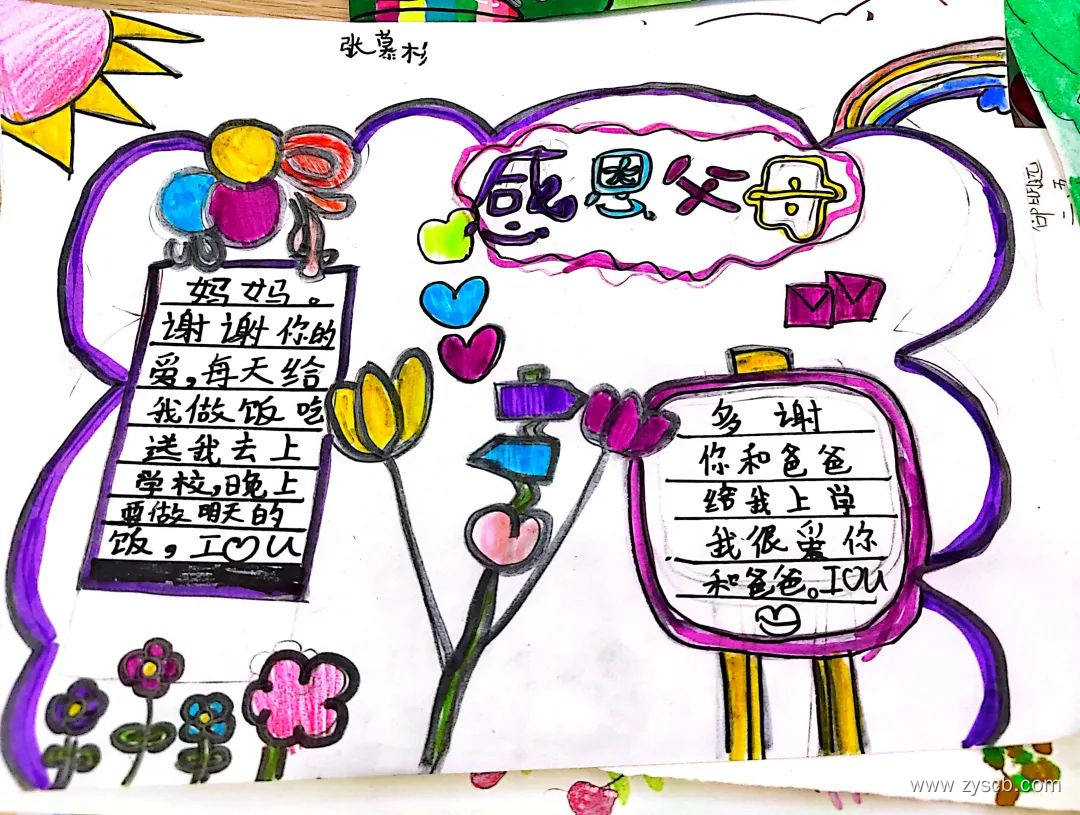 张慕杉
感恩父母
妈妈。
谢谢你的
爱,每天给
我做饭吃
送我去上
学校,晚上
要做明天的
饭,I♡U
多谢
你和爸爸
给我上学
我很爱你
和爸爸。I♡U
二五
www.zyscb.com